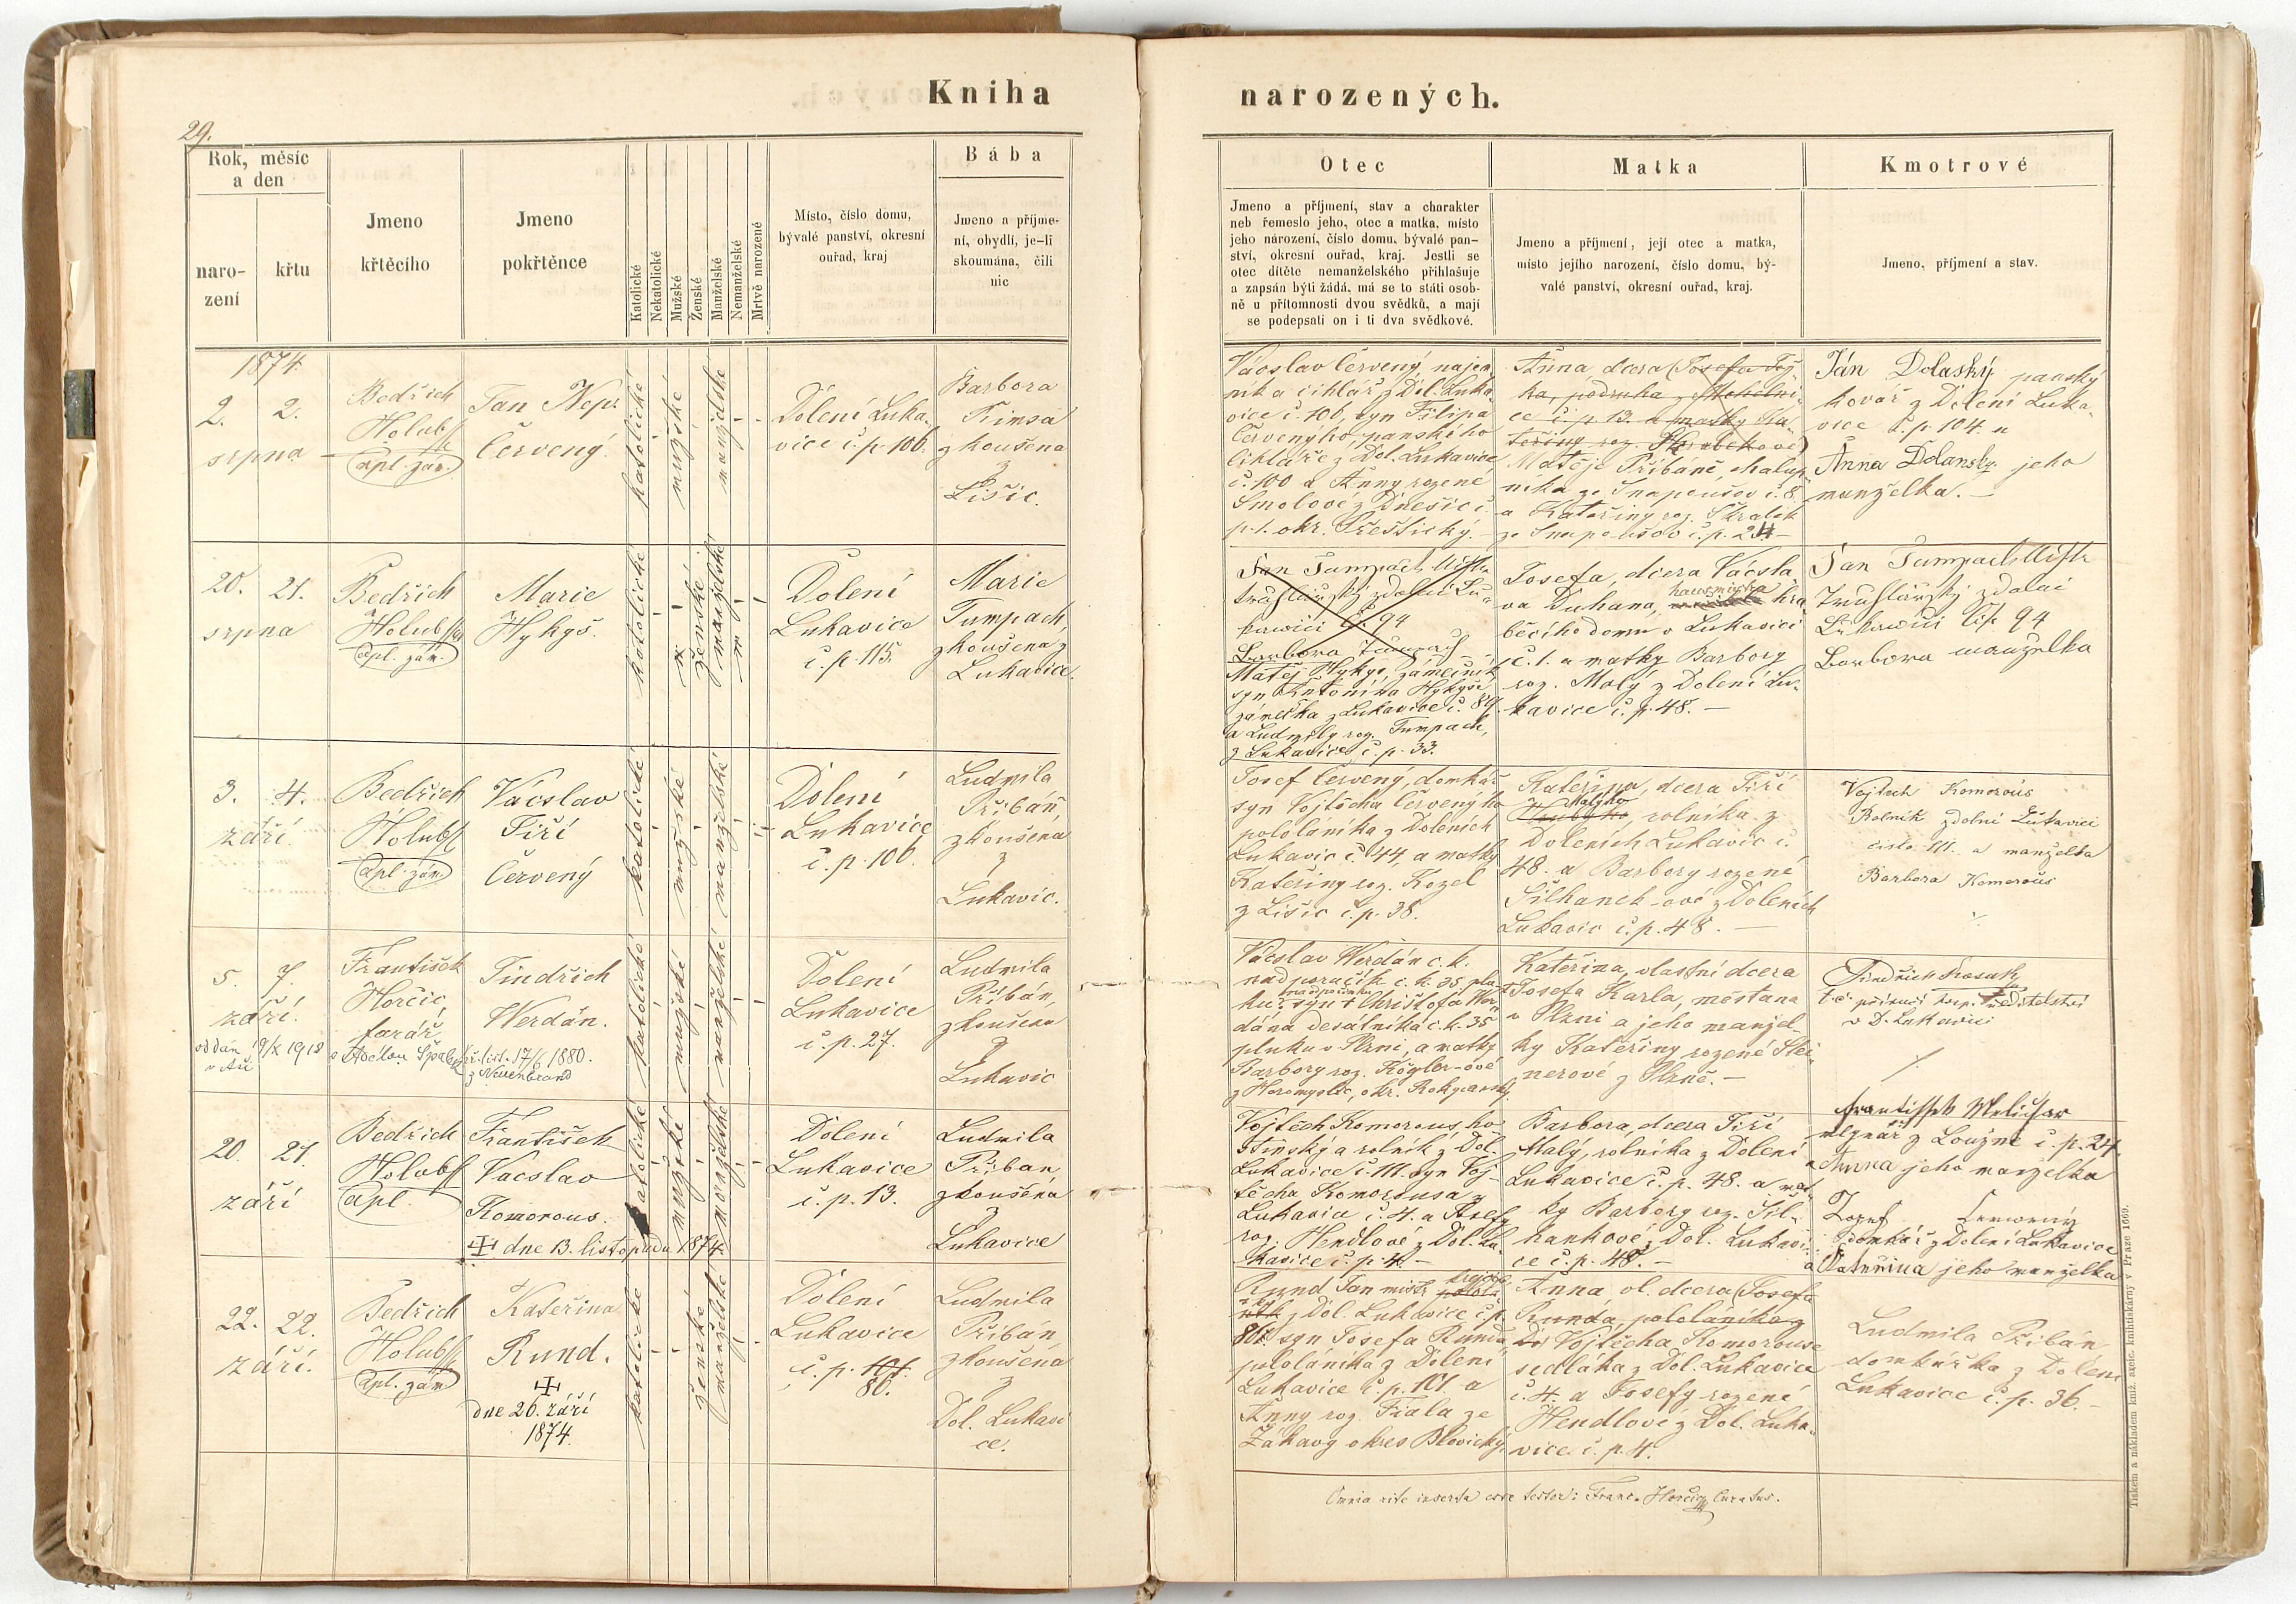 Kniha
narozených.
29.
Rok, měsíc
a den
naro-
zení
křtu
Jmeno
křtěcího
Jmeno
pokřtěnce
Katolické
Nekatolické
Mužské
Ženské
Manželské
Nemanželské
Mrtvě narozené
Místo, číslo domu,
bývalé panství, okresní
ouřad, kraj
Bába
Jmeno a příjme-
ní, obydlí, je-li
skoumána, čili
nic
Otec
Jmeno a příjmení, stav a charakter
neb řemeslo jeho, otec a matka, místo
jeho národení, číslo domu, bývalé pan-
ství, okresní ouřad, kraj. Jestli se
otec dítěte nemanželského přihlašuje
a zapsán býti žádá, má se to státi osob-
ně u přítomnosti dvou svědků, a mají
se podepsati on i ti dva svědkové.
Matka
Jmeno a příjmení, její otec a matka,
místo jejího narození, číslo domu, bý-
valé panství, okresní ouřad, kraj.
Kmotrové
Jmeno, příjmení a stav.
1874
2. 2.
srpna
Bedřich
Holub
kpl. zám.
Jan Nep.
Červený.
katolické
mužské
manželské
Dolení Luka-
vice č. p. 106.
Barbora
Šimsa
zkoušena
z
Lišic.
Vácslav Červený, nájem-
ník a cihlář z Dol. Luka-
vice č. 106, syn Filipa
Červenýho, panského
cihláře z Dol. Lukavice
č. 100 a Anny rozené
Smolové z Dnešic č.
p. 1. okr. Přeštický.
Anna, dcera (Josefa
ka, podruha z
ce č. p. 13. a matky Ka-
teřiny roz.
Matěje Přibáně, chalup-
níka ze Snopoušov č. 8.
a Kateřiny roz. Králík
ze Snopoušov č. p. 24 -
Ján Dolaský panský
kovář z Dolení Luka-
vice č. p. 104. a
Anna Dolansky jeho
manželka. -
20. 21.
srpna
Bedřich
Holub
kpl. zám.
Marie
Hykyš.
katolické
ženské
manželské
Dolení
Lukavice
č. p. 115.
Marie
Tumpach,
zkoušena z
Lukavice.
Jan Tumpach Mistr
truhlářský z dolní Lu-
kawici čp. 94
Barbora Tumpach
Matěj Hykyš, zámečník
syn Antonína Hykyše
zámečka z Lukavice č. 89.
a Ludmily roz. Tumpach,
z Lukavice č. p. 33.
Josefa, dcera Vácsla-
va Duhana, hra-
běcího domu v Lukavici
č. 1. a matky Barbory
roz. Malý z Dolení Lu-
kavice č. p. 48. -
Jan Tumpach Mistr
Truhlářský z dolní
Lukawici čp. 94
Barbora manželka
3. 4.
září.
Bedřich
Holub
kpl. zám.
Vácslav
Jiří
Červený
katolické
mužské
manželské
Dolení
Lukavice
č. p. 106.
Ludmila
Přibáň
zkoušená
z
Lukavic.
Josef Červený, domkář
syn Vojtěcha Červenýho
pololáníka z Doleních
Lukavic č. 44, a matky
Kateřiny roz. Kozel
z Lišic č. p. 38.
Kateřina, dcera Jiří
Malýho
rolníka z
Doleních Lukavic č.
48. a Barbory rozené
Šilhanek-ové z Doleních
Lukavic č. p. 48. -
Vojtěch Komorous
Rolník z dolní Lukavici
číslo 111. a manželka
Barbora Komorous
5. 7.
září.
František
Horčic,
farář
Jindřich
Werdán.
oddán 19/X 1918
v Aši
katolické
mužské
manželské
Dolení
Lukavice
č. p. 27.
Ludmila
Přibán,
zkoušena
z
Lukavic
Vácslav Werdán c. k.
nadporučík c. k. 35. plu-
ku, syn + Christofa Wer-
dána desátníka c. k. 35
pluku v Plzni, a matky
Barbory roz. Kögler-ové
z Heromyslic, okr. Rokycanský.
Kateřina, vlastní dcera
+ Josefa Karla, měštana
v Plzni a jeho manžel-
ky Kateřiny rozené Stei-
nerové z Plzně. -
Jindřich
v D. Lukavici
20. 21.
září
Bedřich
Holub
kpl.
František
Vácslav
Komorous.
dne 13. listopadu 1874.
katolické
mužské
manželské
Dolení
Lukavice
č. p. 13.
Ludmila
Přiban
zkoušená
z
Lukavice
Vojtěch Komorous, ho-
stinský a rolník z Dol.
Lukavice č. 111. syn Voj-
těcha Komorousa z
Lukavic č. 4. a Josefy
roz. Hendlové z Dol. Lu-
kavice č. p. 4. -
Barbora, dcera Jiří
Malý, rolníka z Dolení
Lukavice č. p. 48. a mat-
ky Barbory roz. Šil-
hankové z Dol. Lukavi-
ce č. p. 48. -
Frantissek Melichar
mlynář z Loužné č. p. 24.
a Anna jeho manželka
Jozef Czerwený
domkář z Dolení Lukavice
a Kateřina jeho manželka
22. 22.
září.
Bedřich
Holub
kpl. zám
Kateřina
Rund.
dne 26. září
1874.
katolické
ženské
manželské
Dolení
Lukavice
č. p. 101.
86.
Ludmila
Přibán
zkoušená
z
Dol. Lukavi
ce.
Rund Jan mistr
z Dol. Lukavice č. p.
86. syn Josefa Runda,
pololáníka z Dolení
Lukavice č. p. 101. a
Anny roz. Fiala ze
Žákavy okres Blovický.
Anna vl. dcera (Josefa
Runda, pololáníka z
Do) Vojtěcha Komorouse
sedláka z Dol. Lukavice
č. 4. a Josefy rozené
Hendlové z Dol. Luka-
vice č. p. 4.
Ludmila Přibán
domkářka z Dolení
Lukavice č. p. 36. -
Omnia rite inserta esse testor: Franc. Horčic, Curatus.
Tiskem a nákladem kníž. arcib. knihtiskárny v Praze 1669.